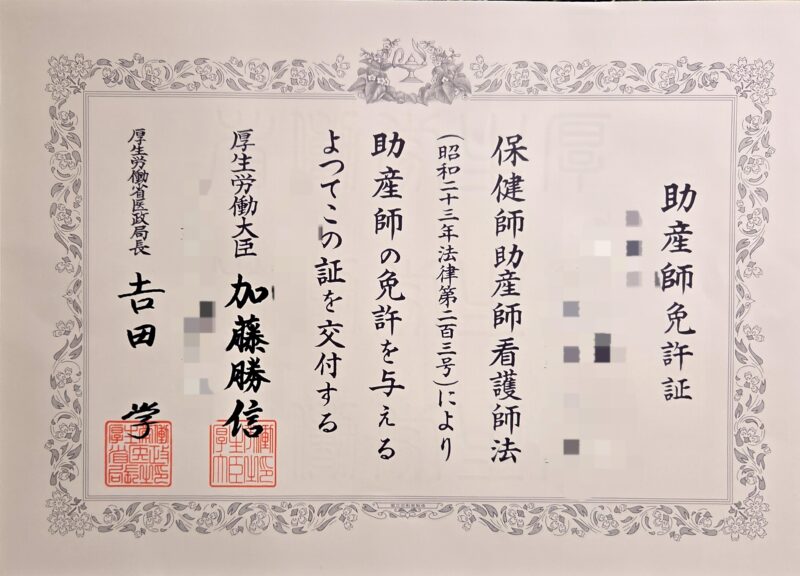 助産師免許証
保健師助産師看護師法
(昭和二十三年法律第二百三号)により
助産師の免許を与える
よつてこの証を交付する
厚生労働大臣 加藤勝信
厚生労働省医政局長 吉田 学